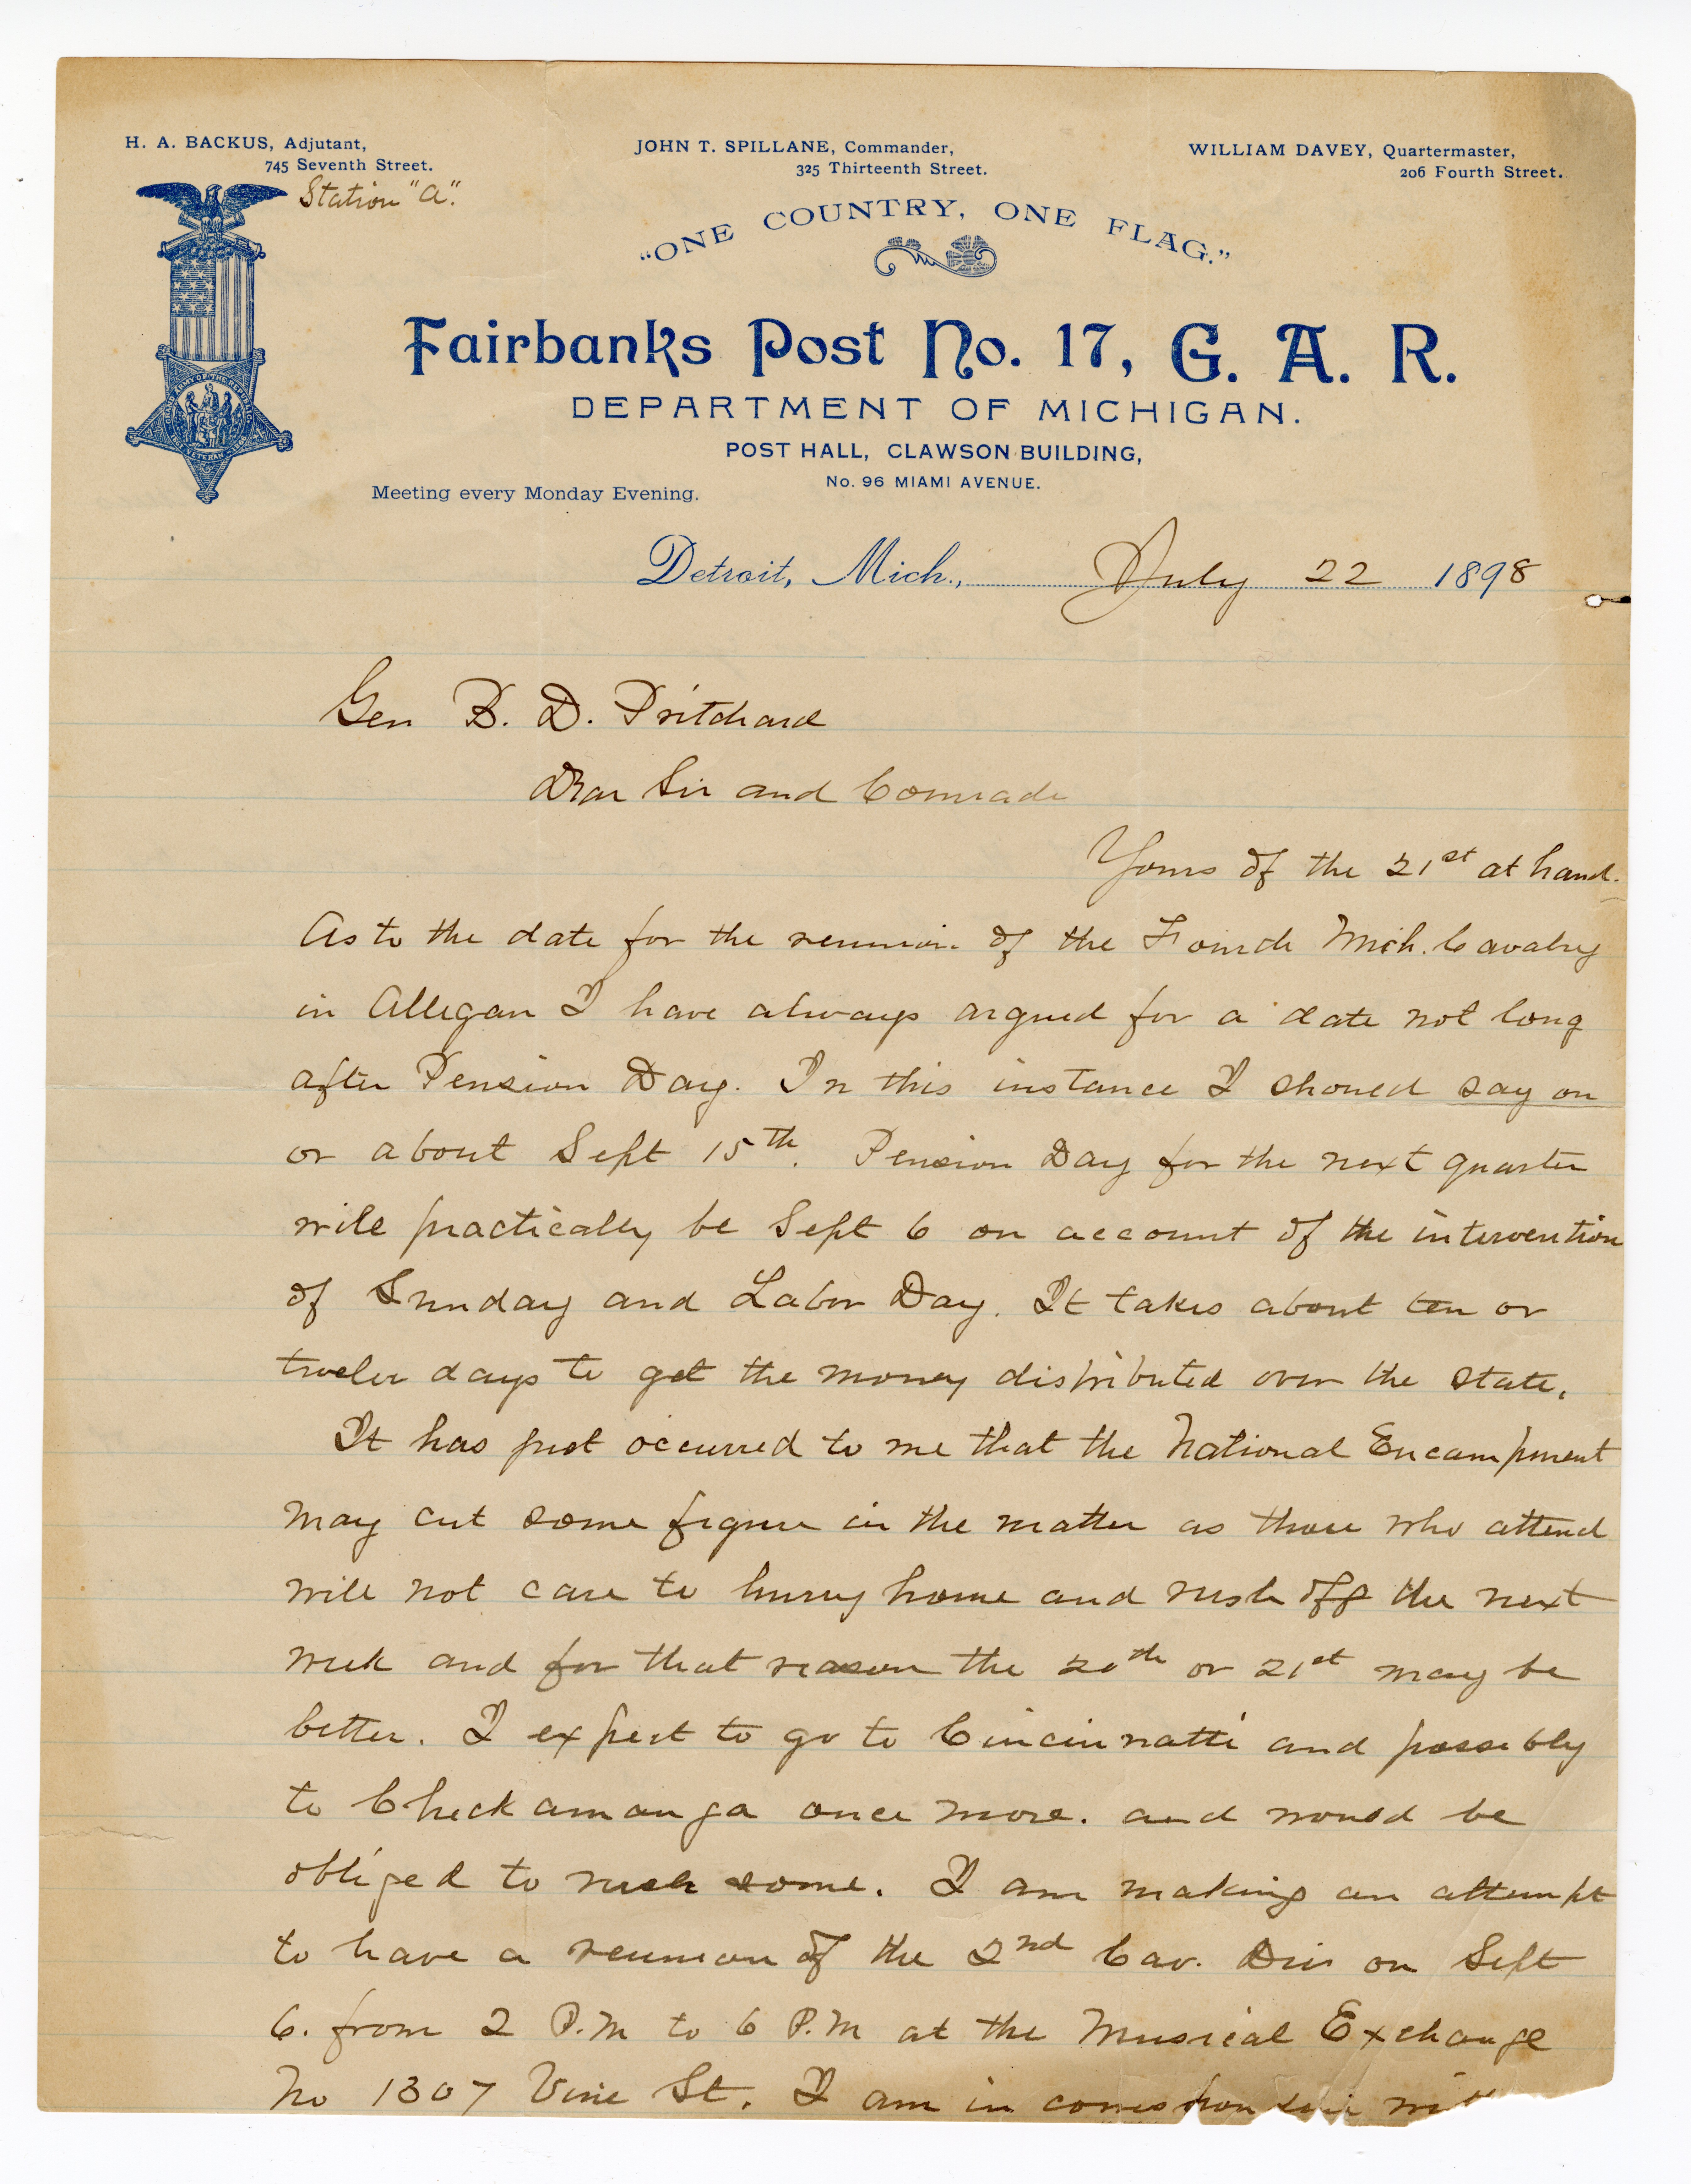 H. A. BACKUS, Adjutant,
745 Seventh Street.
Station "A".
JOHN T. SPILLANE, Commander,
325 Thirteenth Street.
WILLIAM DAVEY, Quartermaster,
206 Fourth Street.
"ONE COUNTRY, ONE FLAG."
GRAND ARMY OF THE REPUBLIC
VETERAN
Fairbanks Post No. 17, G. A. R.
DEPARTMENT OF MICHIGAN.
POST HALL, CLAWSON BUILDING,
No. 96 MIAMI AVENUE.
Meeting every Monday Evening.
Detroit, Mich., July 22 1898
Gen B. D. Pritchard
Dear Sir and Comrade
Yours of the 21st at hand.
As to the date for the reunion of the Fourth Mich. Cavalry
in Allegan I have always argued for a date not long
after Pension Day. In this instance I should say on
or about Sept 15th. Pension Day for the next quarter
will practically be Sept 6 on account of the intervention
of Sunday and Labor Day. It takes about ten or
twelve days to get the money distributed over the state.
It has just occurred to me that the National Encampment
may cut some figure in the matter as those who attend
will not care to hurry home and rush off the next
week and for that reason the 20th or 21st may be
better. I expect to go to Cincinnatti and possibly
to Chickamauga once more. and would be
obliged to rush some. I am making an attempt
to have a reunion of the 2nd Cav. Div on Sept
6. from 2 P.M to 6 P.M at the Musical Exchange
No 1307 Vine St. I am in